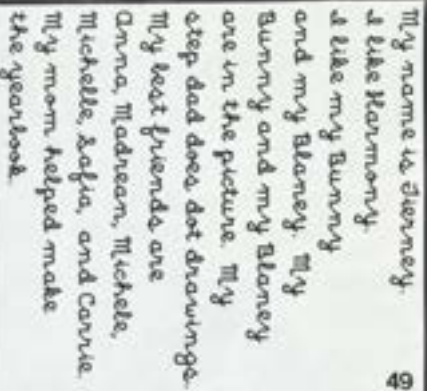 My name is Tierney.
I like Harmony.
I like my Bunny
and my Blaney. My
Bunny and my Blaney
are in the picture. My
step dad does dot drawings.
My best friends are
Anna, Madrean, Michele,
Michelle, Sofia, and Carrie.
My mom helped make
the yearbook.
49